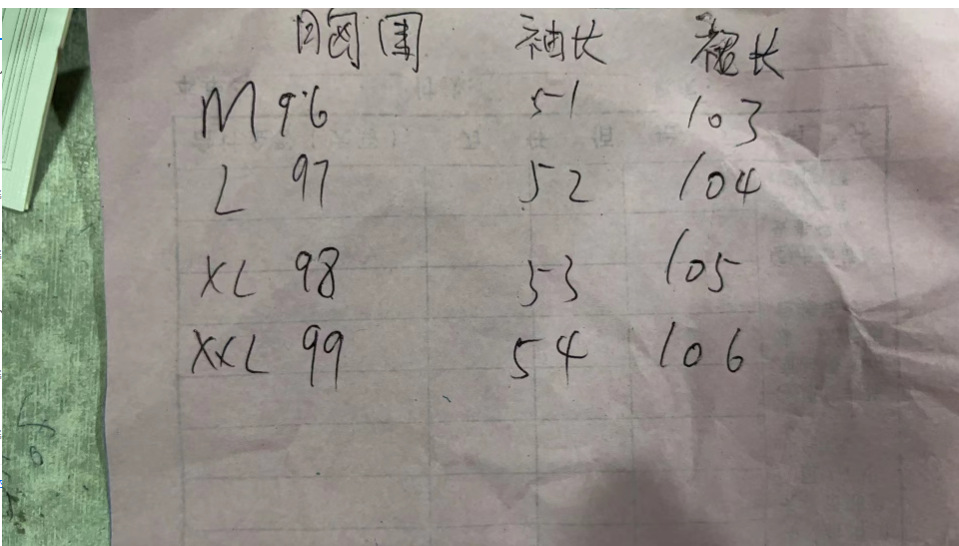 胸围 袖长 裙长
M 96 51 103
L 97 52 104
XL 98 53 105
XXL 99 54 106